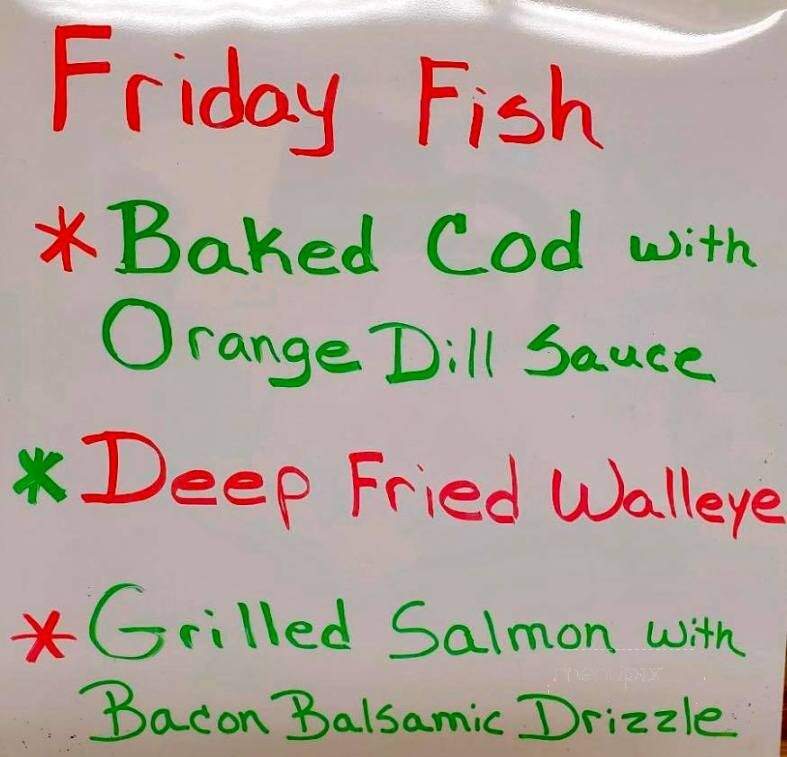 Friday Fish
* Baked Cod with
Orange Dill Sauce
* Deep Fried Walleye
* Grilled Salmon with
menupix
Bacon Balsamic Drizzle